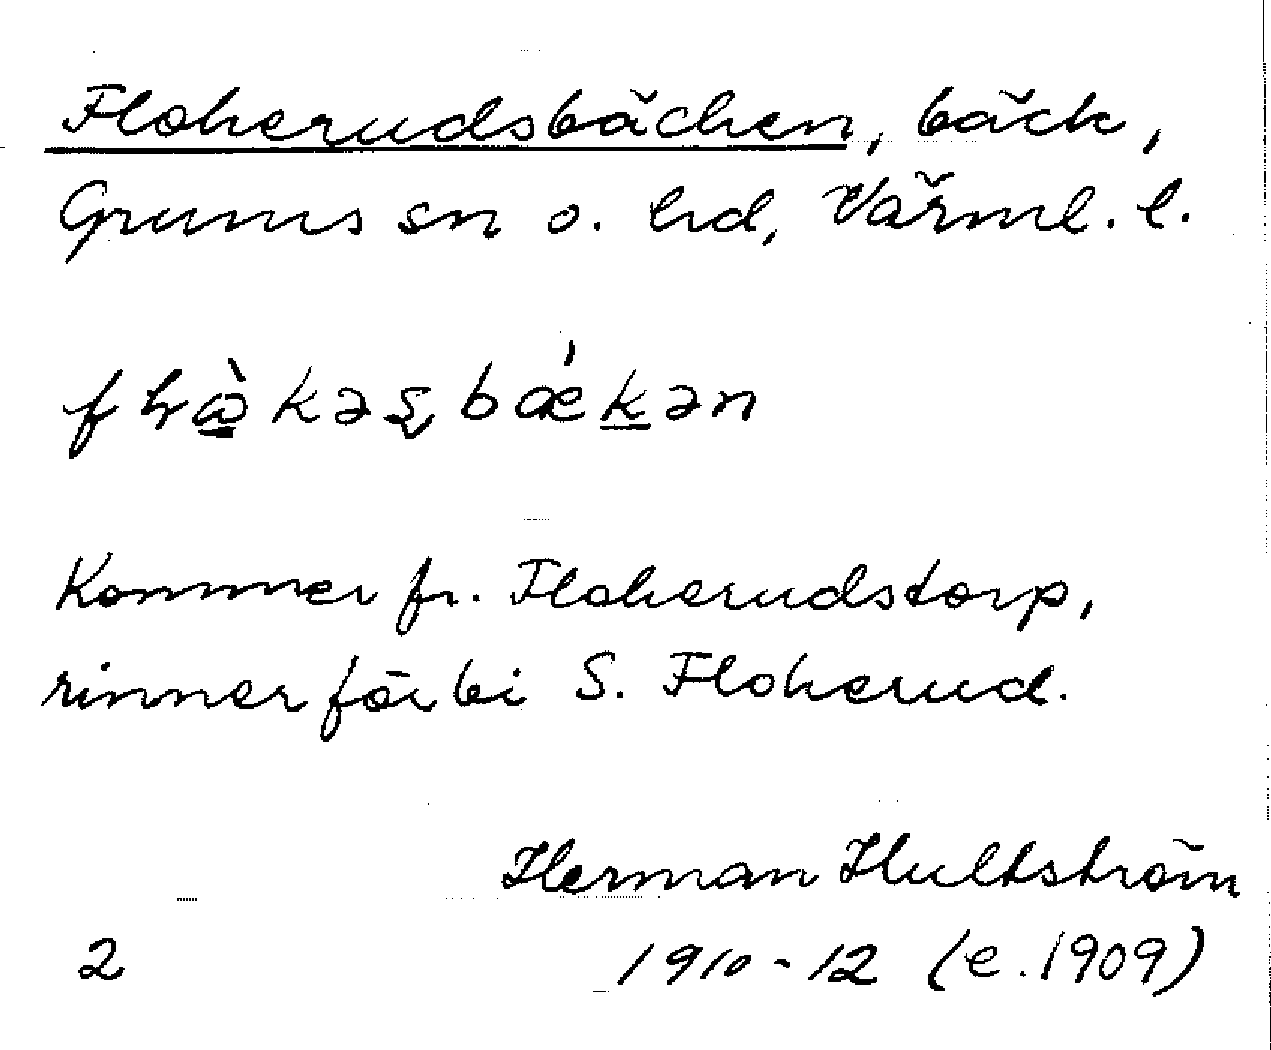 Flokerudsbäcken, bäck,
Grums sn o. hd, Värml. l.
Kommer fr. Flokerudstorp,
rinner förbi S. Flokerud.
Herman Hultström
2 1910-12 (e. 1909)